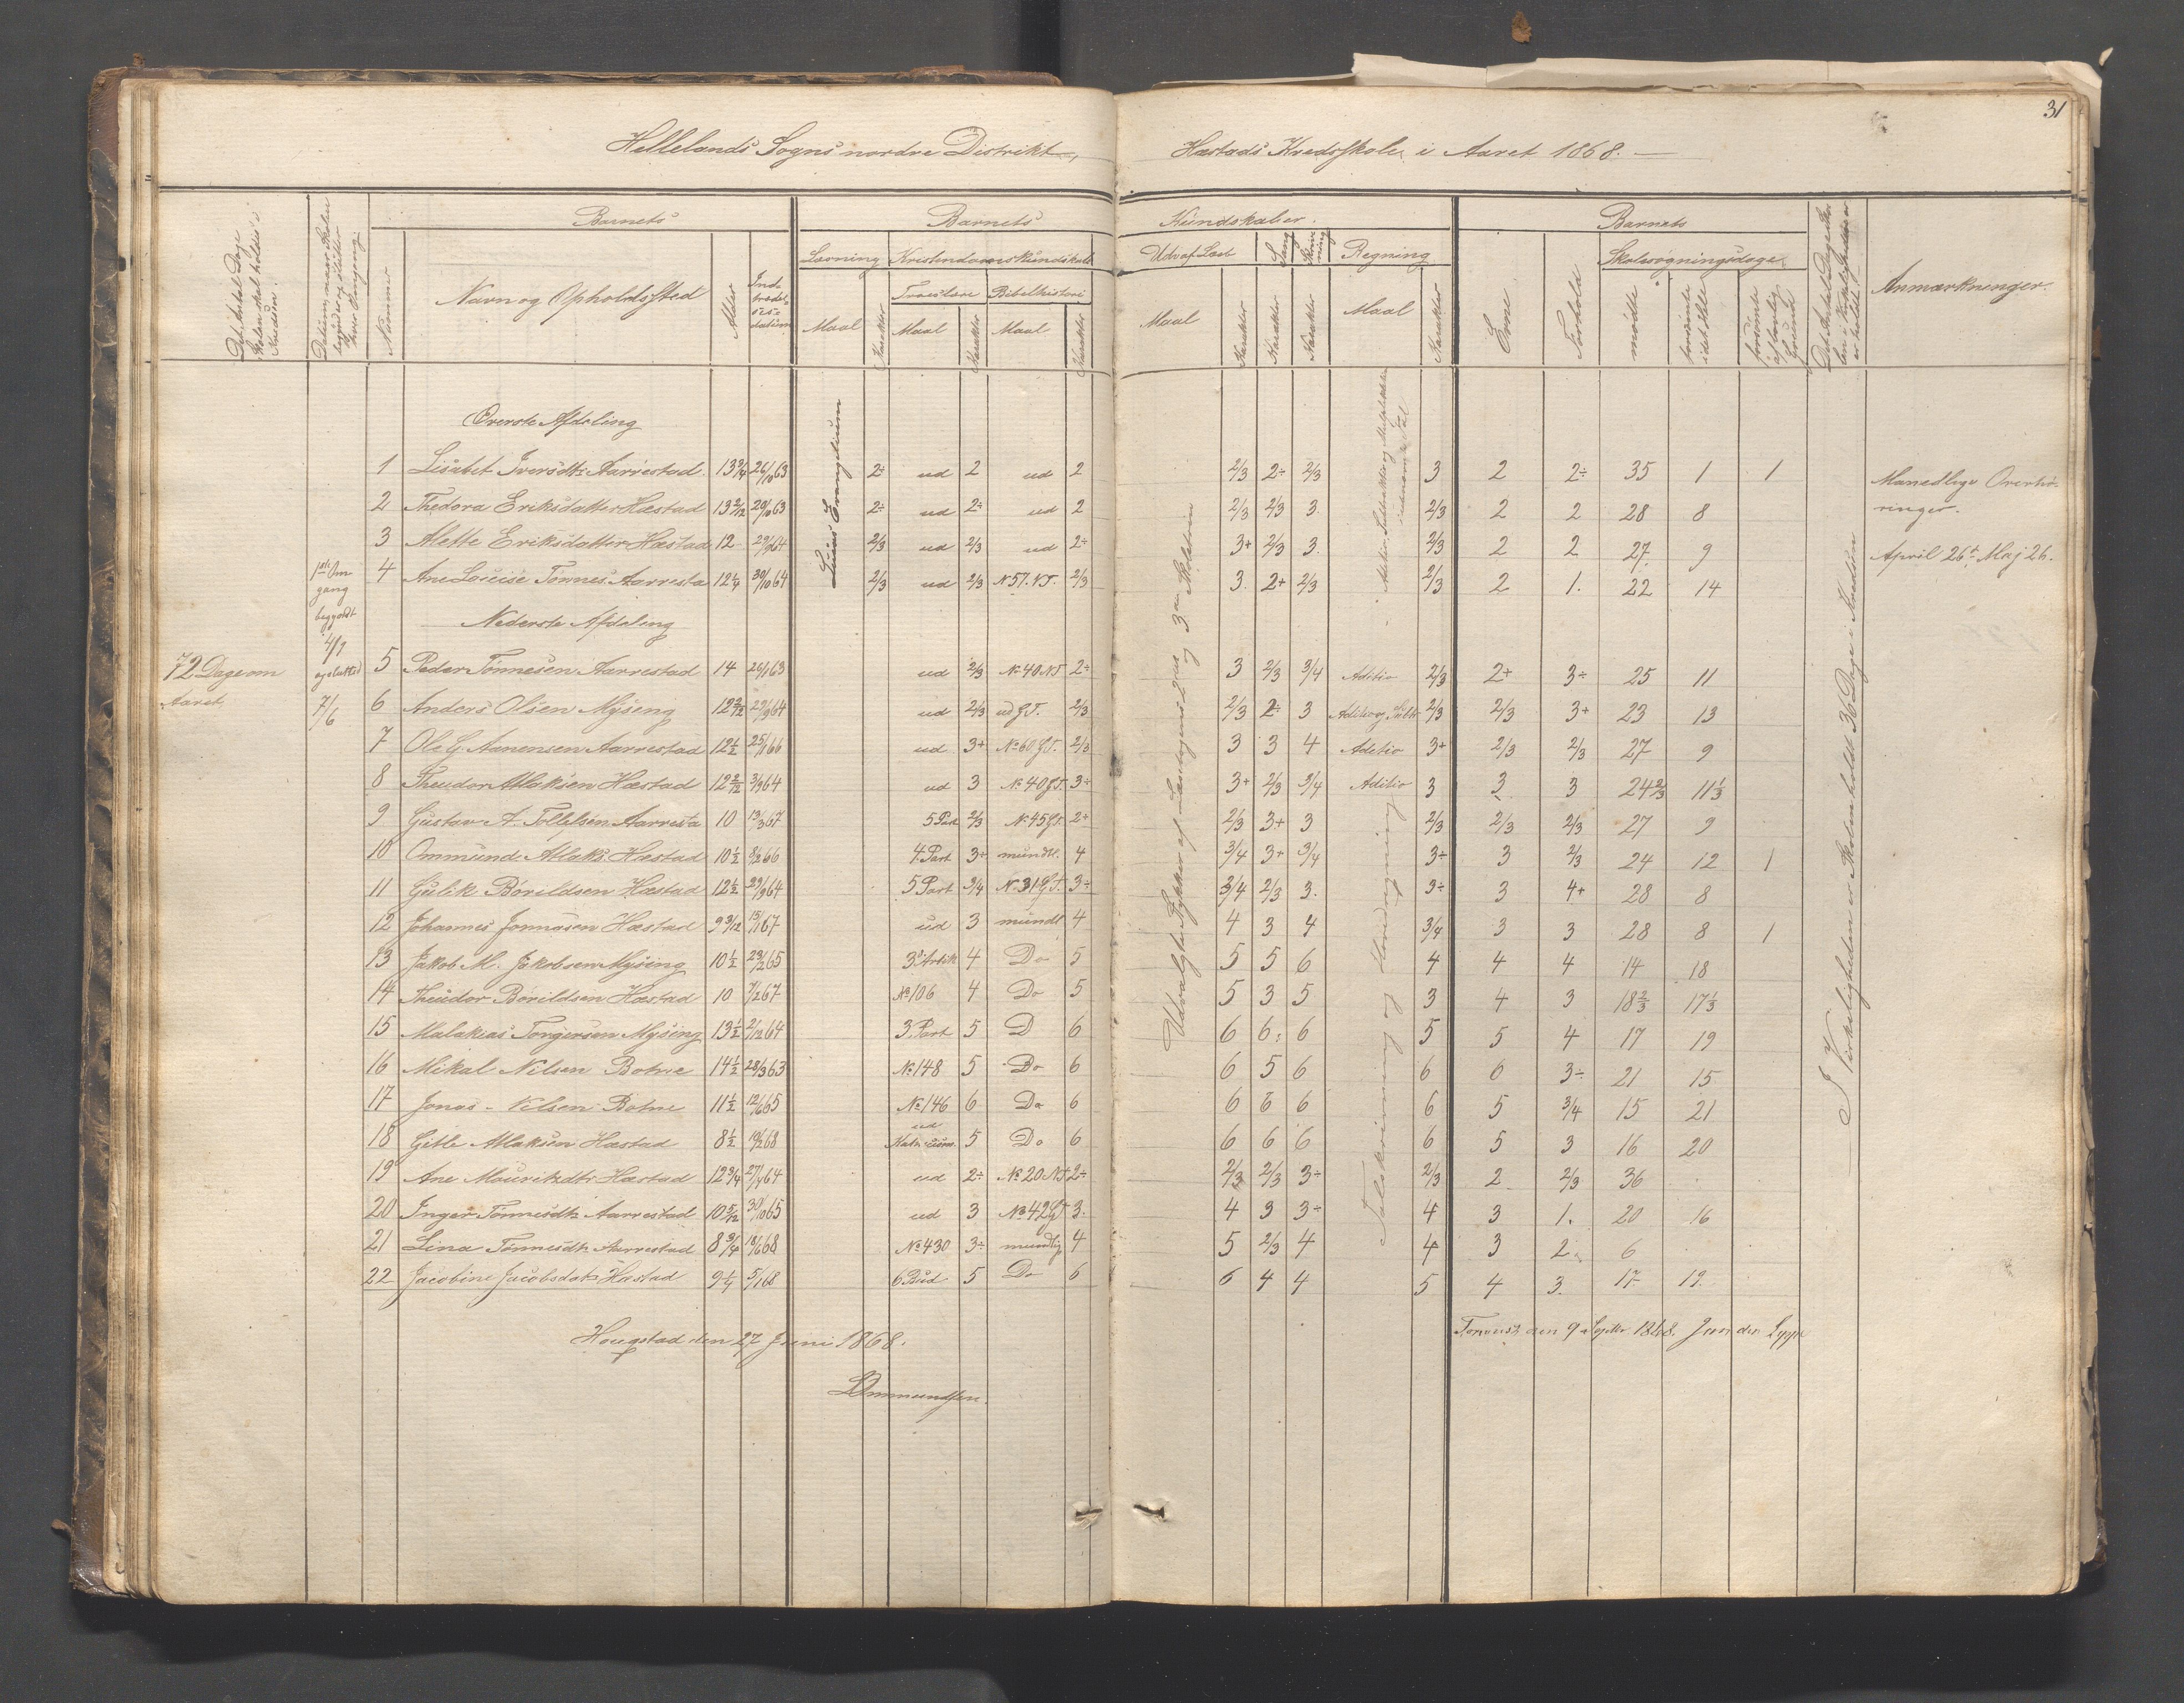 31
Hellelands Sogns nordre Distrikt, Hæstads Kredsskole i Aaret 1868.
Barnets Barnets Kundskaber. Barnets
Det Antal Dage Skolen skal holdes i Kredsen.
Nummer Navn og Opholdssted Alder Indtrædelsesdatum
Læsning Kristendomskundskab Udv. af Læseb. Sang Skrivning Regning
Troeslære Bibelhistorie
Maal Karakter Maal Karakter Maal Karakter
Maal Karakter Karakter Karakter Maal Karakter
Evne Forhold Skolesøgningsdage
mødte forsømte i det Hele forsømte af lovlig Grund
Anmærkninger.
Øverste Afdeling
1 Lisabet Iversdtr Aarrestad 13 3/4 26/10 63 2÷ ud 2 ud 2 2/3 2÷ 2/3 3 2 2÷ 35 1 1
2 Thedora Eriksdatter Hæstad 13 2/12 20/10 63 2÷ ud 2÷ ud 2 2/3 2/3 3. 2/3 2 2 28 8
3 Alette Eriksdatter Hæstad 12 29/9 64 2/3 ud 2/3 ud 2÷ 3+ 2/3 3. 2/3 2 2 27. 9
4 Ane Louise Tønnes. Aarresta 12 1/4 30/10 64 2/3 ud 2/3 N 57. N.T. 2/3 3. 2+ 2/3 2/3 2 1. 22 14
Lucas Evangelium
Maanedlige Overhøringer.
April 26de Maj 26.
1ste Omgang begyndt 4/1 og sluttet 7/6
72 Dage om Aaret.
Nederste Afdeling
5 Peder Tønnesen Aarrestad 14 26/1 63 ud 2/3 No 40 NT 2÷ 3 2/3 3/4 Aditio 2/3 2+ 3÷ 25 11
6 Anders Olsen Mysing 12 2/12 29/9 64 ud 2/3 ud G.T. 2/3 2/3 2÷ 3 Aditio og Subtr 2/3 2/3 3+ 23 13
7 Ole G. Aanensen Aarrestad 12 1/2 25/1 66 ud 3+ No 60 G.T. 2/3 3 3 4 Aditio 3+ 2/3 2/3 27 9
8 Theodor Atlaksen Hæstad 12 2/12 3/9 64 ud 3 No 40 G.T. 3÷ 3+ 2/3 3/4 Aditio 3 3 3 24 2/3 11 1/3
9 Gustav A. Tollefsen Aarresta 10 13/3 67 5 Part 2/3 No 45 G.T. 2÷ 2/3 3+ 3 2/3 2/3 2/3 27 9
10 Ommund Atlaks. Hæstad 10 1/2 8/2 66 4. Part 3÷ mundtl. 4 3/4 3+ 3/4 3÷ 3 2/3 24 12 1
11 Gulik Børildsen Hæstad 12 1/2 29/9 64 5 Part 3/4 N. 31 G.T. 3÷ 3/4 2/3 3. 3÷ 3 4+ 28 8
12 Johannes Jonnasen Hæstad 9 3/12 15/1 67 ud 3 mundt 4 4 3 4 3/4 3 3 28 8 1
13 Jakob M. Jokobsen Mysing 10 1/2 23/2 65 3 Artik 4 Do 5 5 5 6 4 4 4 14 18
14 Theodor Børildsen Hæstad 10 7/2 67 No 106 4 Do 5 5 3 5 3 4 3 18 2/3 17 1/3
15 Malakias Torgersen Mysing 13 1/2 2/12 64 3. Part 5 D 6 6 6 6 5 5 4 17 19
16 Mikal Nilsen Botne 14 1/2 28/3 63 No 148 5 Do 6 6 5 6 6 6 3÷ 21 15
17 Jonas Nilsen Botne 11 1/2 12/6 65 No 146 6 Do 6 6 6 6 6 5 3/4 15 21
18 Gitle Atlaksen Hæstad 8 1/2 19/2 68 ud 5 Do 6 6 6 6 6 5 3 16 20
19 Ane Mouritzdtr Hæstad 12 3/4 27/4 64 ud 2÷ No 20 NT 2÷ 2/3 2/3 3÷ 2/3 2 2/3 36
20 Inger Tønnesdtr Aarrestad 10 5/12 30/10 65 ud 3 No 42 GT 3. 4 3 3÷ 4 3 1. 20 16
21 Lina Tønnesdtr Aarrestad 8 3/4 18/6 68 No 430 3÷ mundtlig 4 5 2/3 4 4 3 2 6
22 Jacobine Jacobsdatr Hæstad 9 1/4 5/1 68 6 Bud 5 Do 6 6 4 4 5 4 3. 17 19.
Udvalgte Stykker af Læsebogens 2den og 3die Skoletrin
Talskrivning og Hovedregning
I Virkeligheden er Skolen holdt 36 Dage i Kredsen
Hougstad den 27 Juni 1868.
Ommundsen.
den 9 Septbr 1868.